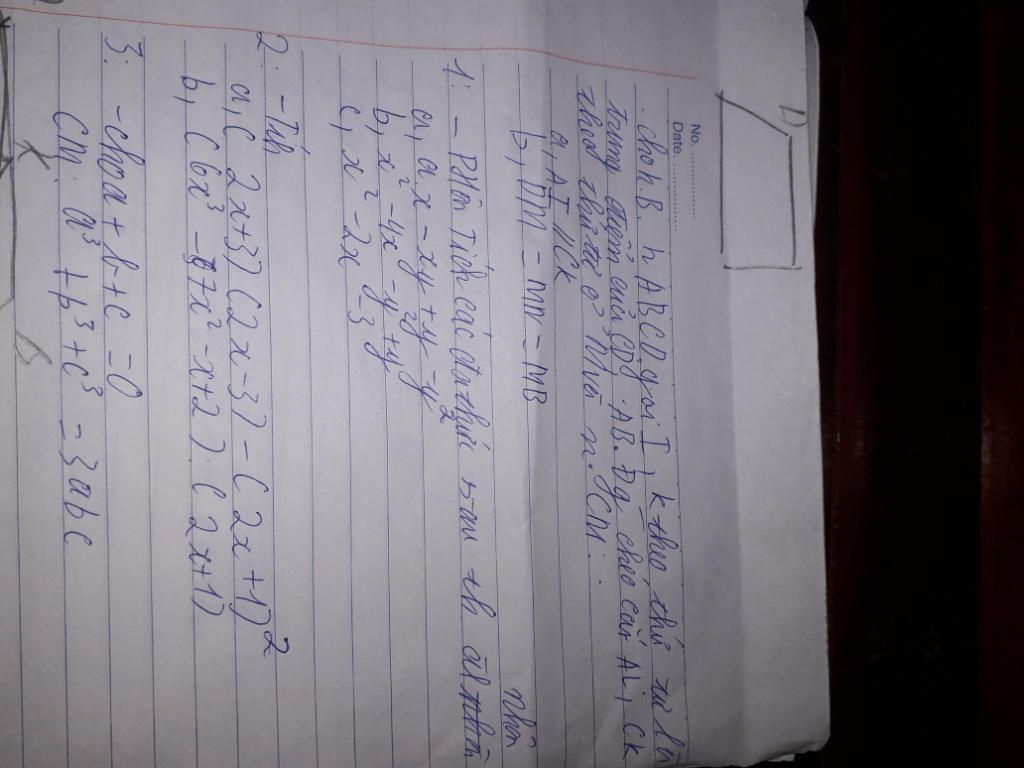 D
No. ............
Date. ............
. cho h.B. h ABCD gọi I, k theo thứ tự là
trung điểm của CD, AB. Đg chéo cắt AI, CK
theo thứ tự ở M và n. CM:.
a, AI // CK
b, DM = MN = MB
nhân
1: - Phân tích các đa thức sau th
a, ax - xy + ay - y²
b, x² - 4x - y² + 4
c, x² - 2x - 3
2: - Tính
a, ( 2x+3) (2x-3) - ( 2x +1)²
b, ( 6x³ - 7x² - x+2 ) . ( 2x+1)
3: - cho a + b + c = 0
CM: a³ + b³ + c³ = 3abc
K
B